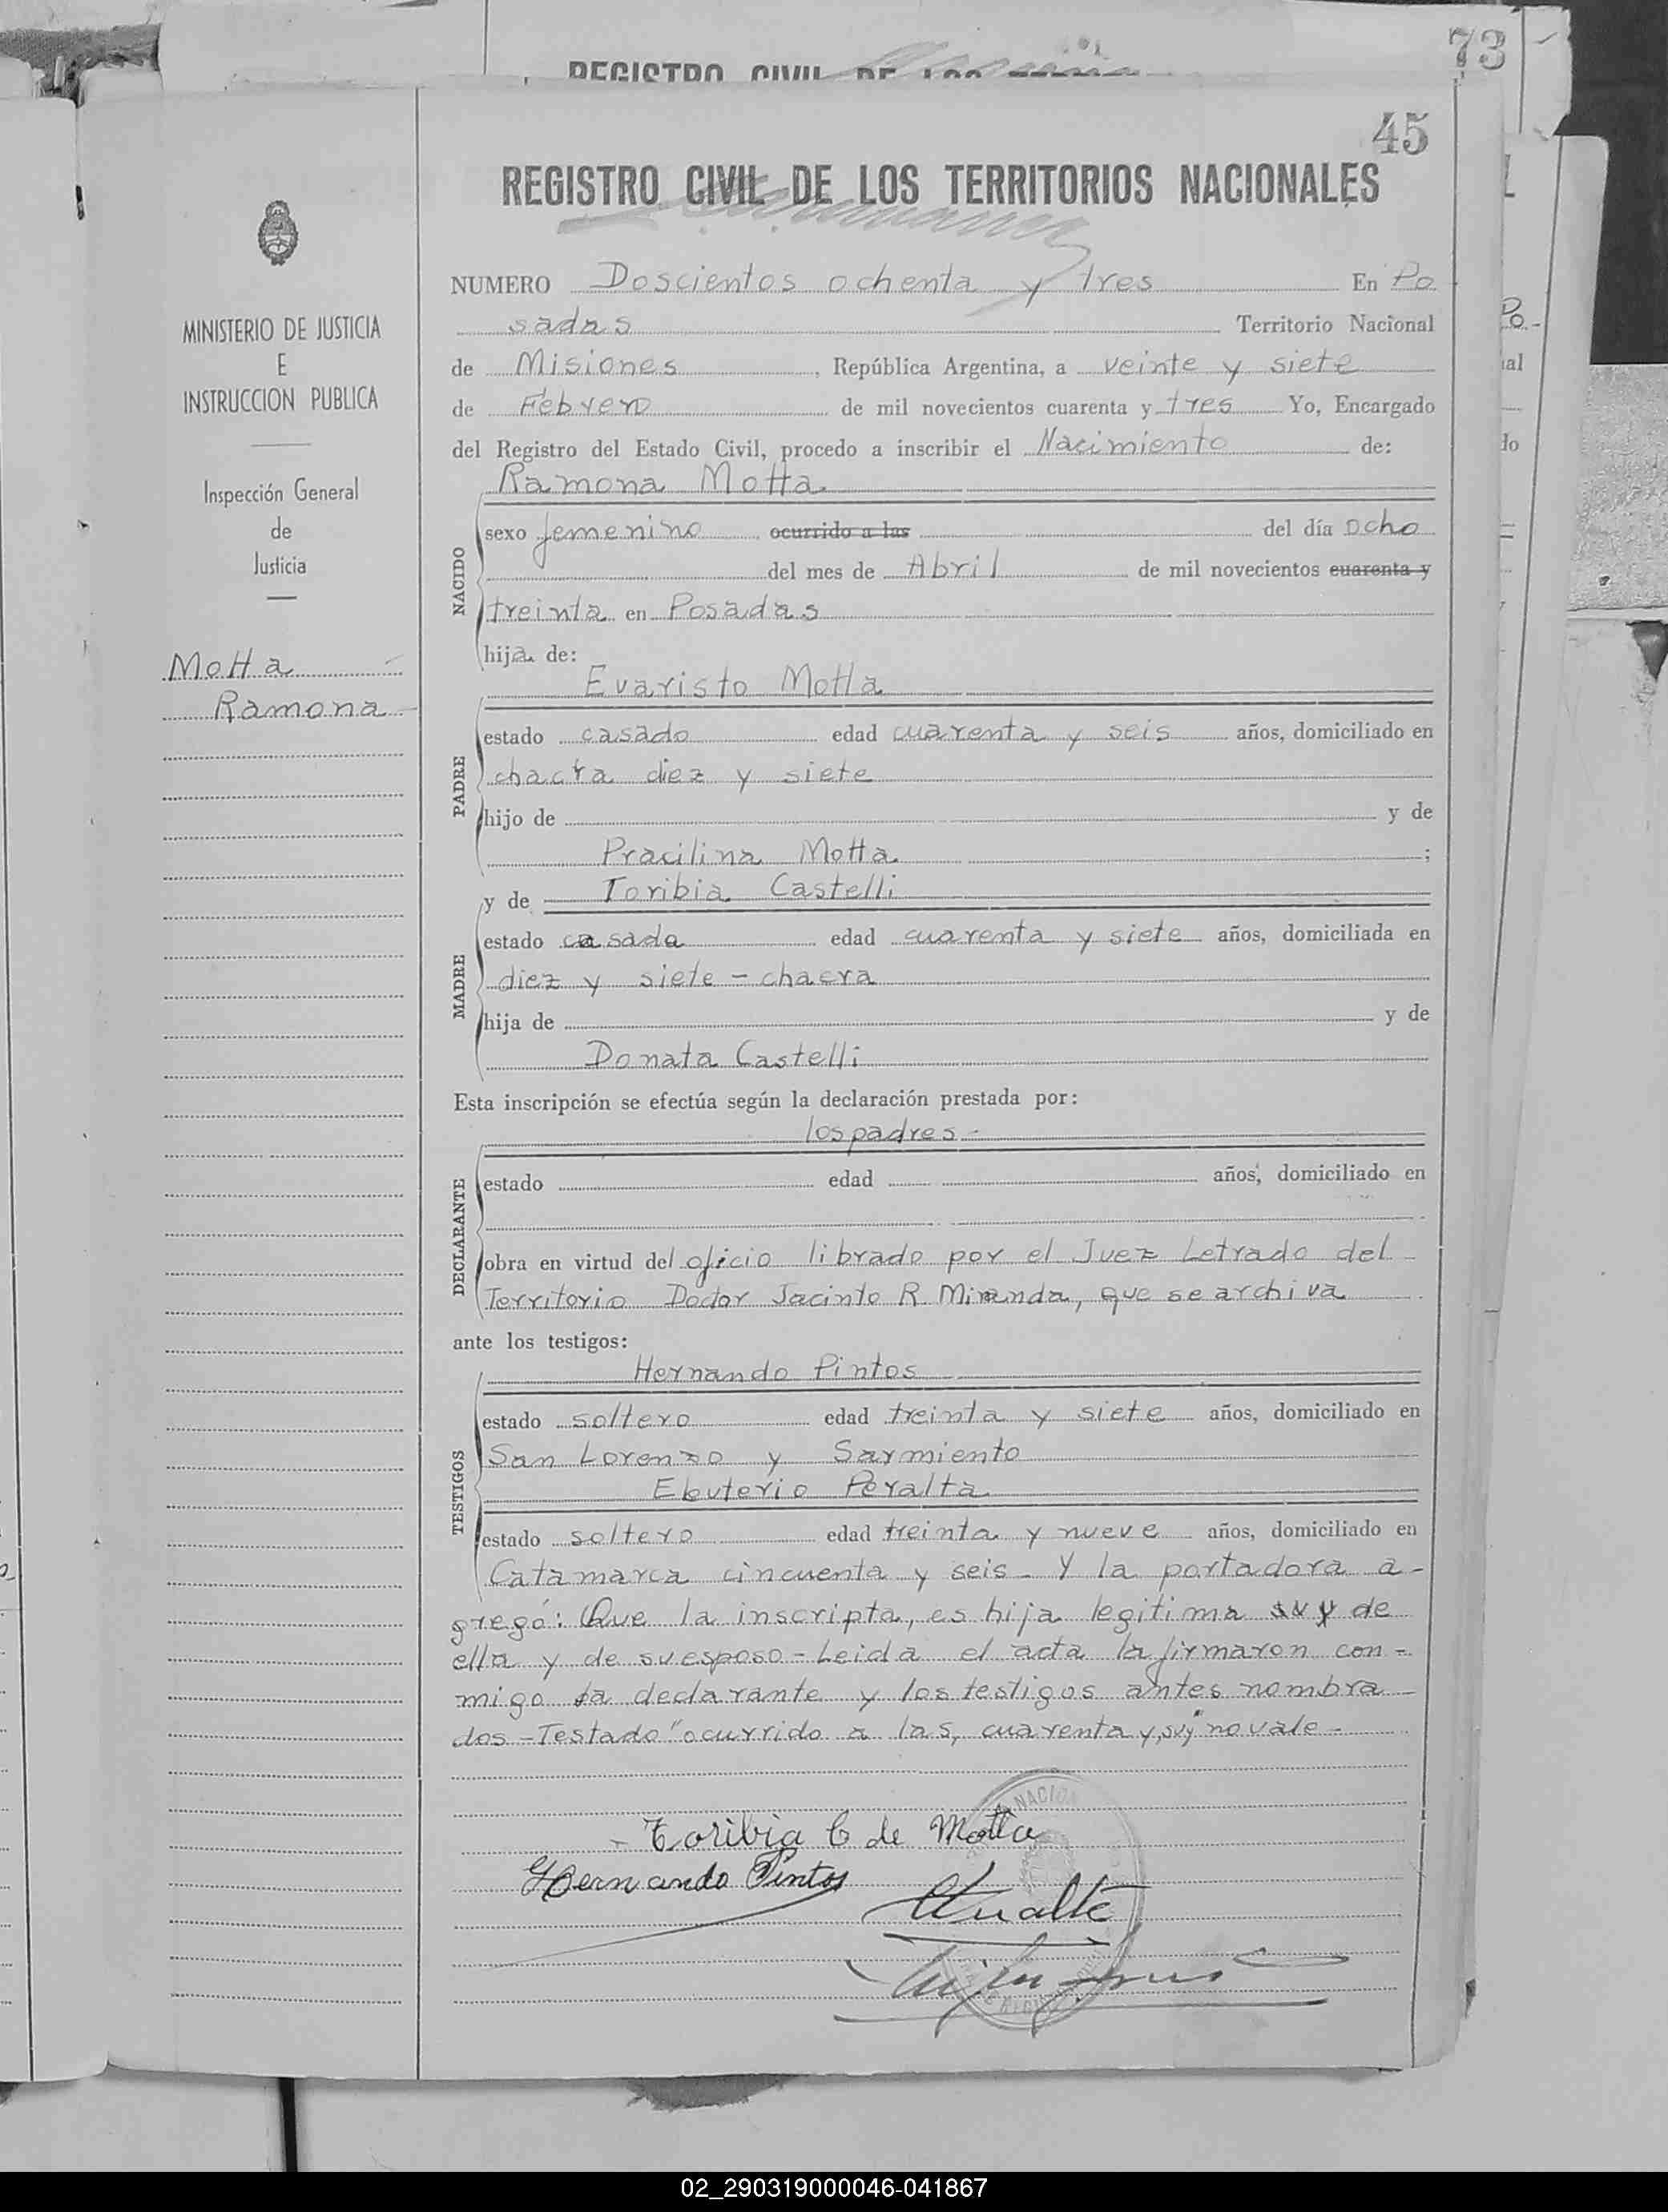 73
REGISTRO CIVIL DE LOS
45
REGISTRO CIVIL DE LOS TERRITORIOS NACIONALES
MINISTERIO DE JUSTICIA
E
INSTRUCCION PUBLICA
Inspección General
de
Justicia
Motta
Ramona
NUMERO Doscientos ochenta y tres En Po
sadas Territorio Nacional
de Misiones, República Argentina, a veinte y siete
de Febrero de mil novecientos cuarenta y tres Yo, Encargado
del Registro del Estado Civil, procedo a inscribir el Nacimiento de:
Ramona Motta
NACIDO
sexo femenino ocurrido a las del día ocho
del mes de Abril de mil novecientos cuarenta y
treinta en Posadas
hija de:
Evaristo Motta
PADRE
estado casado edad cuarenta y seis años, domiciliado en
chacra diez y siete
hijo de y de
Pracilina Motta ;
y de Toribia Castelli
MADRE
estado casada edad cuarenta y siete años, domiciliada en
diez y siete - chacra
hija de y de
Donata Castelli
Esta inscripción se efectúa según la declaración prestada por:
los padres -
DECLARANTE
estado edad años, domiciliado en
obra en virtud del oficio librado por el Juez Letrado del
Territorio Doctor Jacinto R. Miranda, que se archiva
ante los testigos:
Hernando Pintos
TESTIGOS
estado soltero edad treinta y siete años, domiciliado en
San Lorenzo y Sarmiento
Eleuterio Peralta
estado soltero edad treinta y nueve años, domiciliado en
Catamarca cincuenta y seis - Y la portadora a-
gregó: Que la inscripta, es hija legitima suy de
ella y de su esposo - Leida el acta la firmaron con-
migo la declarante y los testigos antes nombra-
dos - Testado "ocurrido a las, cuarenta y, suy" no vale -
Toribia C de Motta
Hernando Pintos
02_290319000046-041867